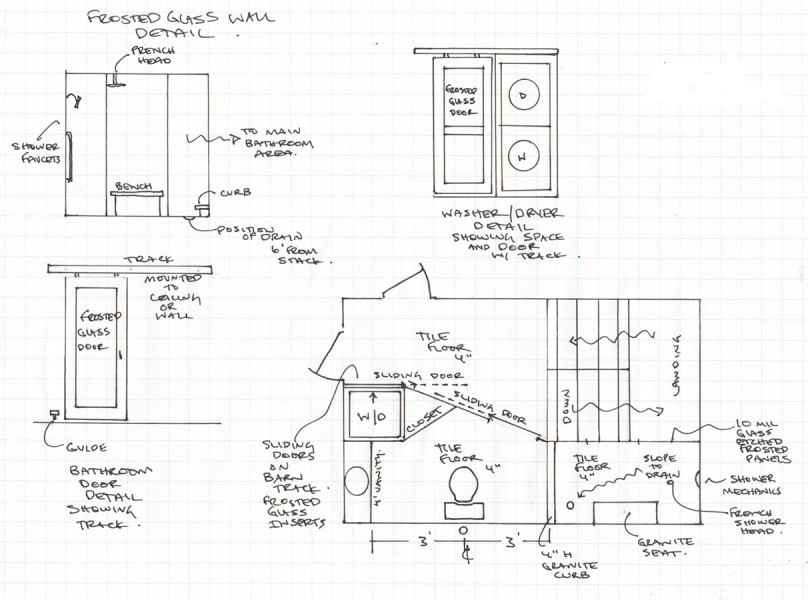 FROSTED GLASS WALL
DETAIL.
FRENCH
HEAD
SHOWER
FAUCETS
TO MAIN
BATHROOM
AREA.
BENCH
CURB
POSITION
OF DRAIN
6' FROM
STACK.
FROSTED
GLASS
DOOR
D
W
WASHER/DRYER
DETAIL
SHOWING SPACE
AND DOOR
W/ TRACK.
TRACK
MOUNTED
TO
CEILING
OR
WALL
FROSTED
GLASS
DOOR
GUIDE
BATHROOM
DOOR
DETAIL
SHOWING
TRACK.
TILE
FLOOR
4"
SLIDING DOOR
SLIDING DOOR
W/D
CLOSET
SLIDING
DOORS
ON
BARN
TRACK.
FROSTED
GLASS
INSERTS
4' VANITY.
TILE
FLOOR
4"
3'
3'
4" H
GRANITE
CURB
TILE
FLOOR
4"
SLOPE
TO
DRAIN
10 MIL
GLASS
ETCHED
FROSTED
PANELS
SHOWER
MECHANICS
FRENCH
SHOWER
HEAD.
GRANITE
SEAT.